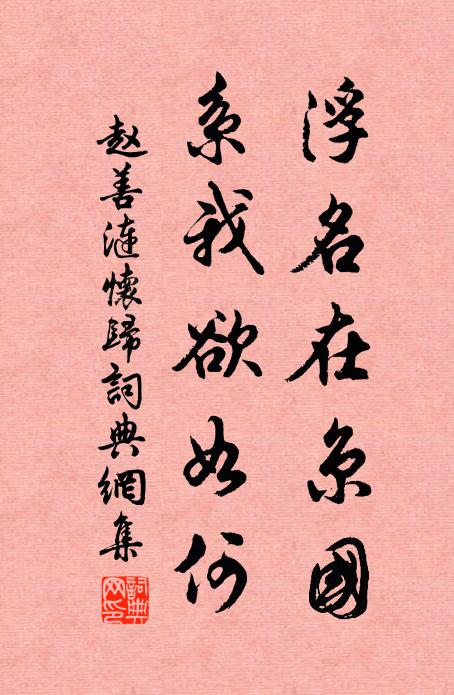 浮名在京國
系我欲如何
赵善漣懷歸詞典網集
詞典网印